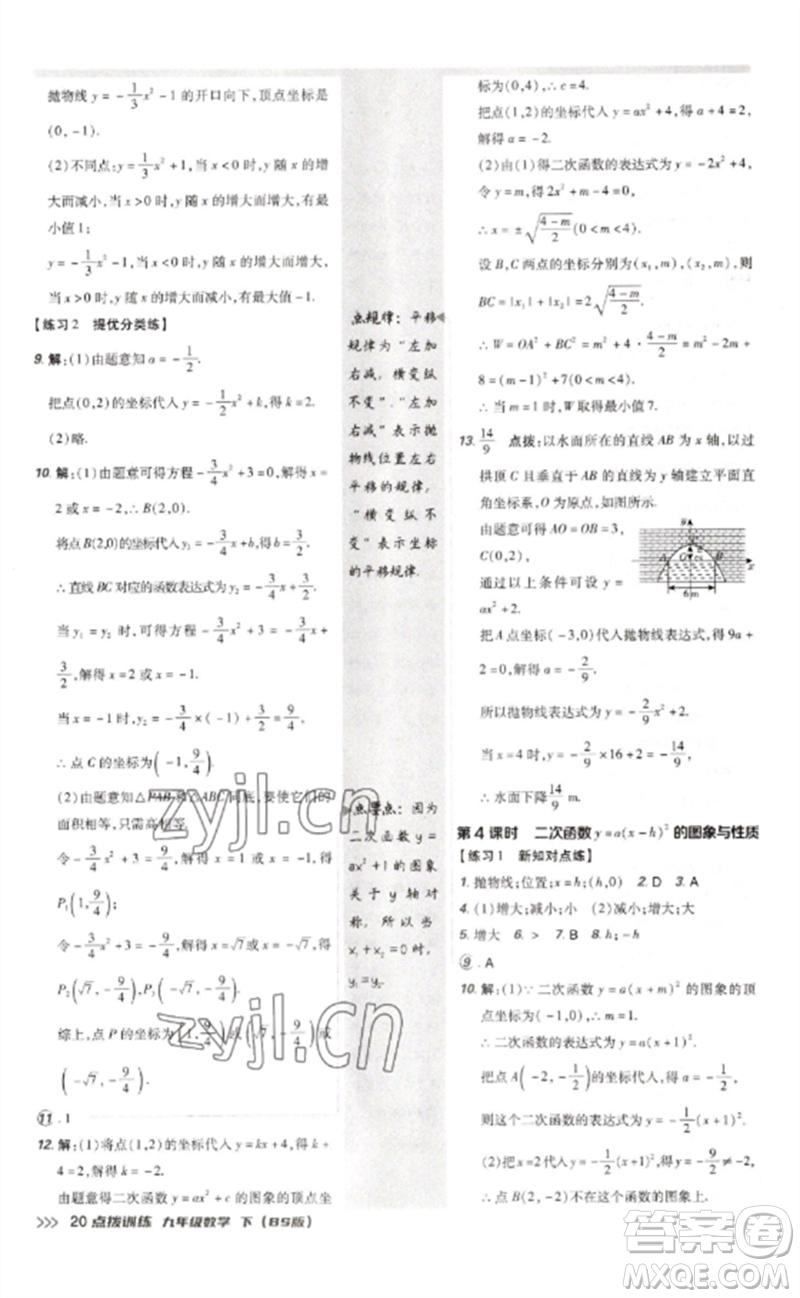 抛物线 y = -1/3x² - 1 的开口向下,顶点坐标是
(0,-1).
(2)不同点:y = 1/3x² + 1,当 x < 0 时,y 随 x 的增
大而减小,当 x > 0 时,y 随 x 的增大而增大,有最
小值 1;
y = -1/3x² - 1,当 x < 0 时,y 随 x 的增大而增大,
当 x > 0 时,y 随 x 的增大而减小,有最大值 -1.
【练习2 提优分类练】
9. 解:(1)由题意知 a = -1/2.
把点(0,2)的坐标代入,得 k = 2.
(2)略.
10. 解:(1)由题意可得方程 -3/4x² + 3 = 0,解得 x =
2 或 x = -2,∴B(2,0).
将点 B(2,0)的坐标代入 y₂ = -3/4x + b,得 b = 3/2.
∴直线 BC 对应的函数表达式为 y₂ = -3/4x + 3/2.
当 y₁ = y₂ 时,可得方程 -3/4x² + 3 = -3/4x +
3/2,解得 x = 2 或 x = -1.
当 x = -1 时,y₂ = -3/4 × (-1) + 3/2 = 9/4.
∴点 C 的坐标为(-1, 9/4).
(2)由题意知△PAB 和△ABC 同底,要使它们的
面积相等,只需高相等.
令 -3/4x² + 3 = 9/4,解得 x = 1 或 x = -1,∴
P₁(1, 9/4);
令 -3/4x² + 3 = -9/4,解得 x = √7 或 x = -√7,∴
P₂(√7, -9/4),P₃(-√7, -9/4).
综上,点 P 的坐标为(1, 9/4)或(√7, -9/4)或
(-√7, -9/4).
11. 1
12. 解:(1)将点(1,2)的坐标代入 y = kx + 4,得 k +
4 = 2,解得 k = -2.
由题意得二次函数 y = ax² + c 的图象的顶点坐
点规律:平移
规律为“左加
右减,横变纵
不变”.“左加
右减”表示抛
物线位置左右
平移的规律,
“横变纵不
变”表示坐标
的平移规律.
点易点:因为
二次函数 y =
ax² + 1 的图象
关于 y 轴对
称,所以当
x₁ + x₂ = 0 时,
y₁ = y₂.
标为(0,4),∴c = 4.
把点(1,2)的坐标代入 y = ax² + 4,得 a + 4 = 2,
解得 a = -2.
(2)由(1)得二次函数的表达式为 y = -2x² + 4,
令 y = m,得 2x² + m - 4 = 0,
∴x = ±√((4-m)/2) (0 < m < 4).
设 B,C 两点的坐标分别为(x₁,m),(x₂,m),则
BC = |x₁| + |x₂| = 2√((4-m)/2).
∴W = OA² + BC² = m² + 4 · (4-m)/2 = m² - 2m +
8 = (m-1)² + 7(0 < m < 4).
∴当 m = 1 时,W 取得最小值 7.
13. 14/9 点拨:以水面所在的直线 AB 为 x 轴,以过
拱顶 C 且垂直于 AB 的直线为 y 轴建立平面直
角坐标系,O 为原点,如图所示.
由题意可得 AO = OB = 3,
C(0,2),
通过以上条件可设 y =
ax² + 2.
y
A
B
x
6 m
把 A 点坐标(-3,0)代入抛物线表达式,得 9a +
2 = 0,解得 a = -2/9.
所以抛物线表达式为 y = -2/9x² + 2.
当 x = 4 时,y = -2/9 × 16 + 2 = -14/9,
∴水面下降 14/9 m.
第4课时 二次函数 y = a(x - h)² 的图象与性质
【练习1 新知对点练】
1. 抛物线;位置;x = h;(h,0) 2. D 3. A
4. (1)增大;减小;小 (2)减小;增大;大
5. 增大 6. > 7. B 8. h;-h
9. A
10. 解:(1)∵二次函数 y = a(x + m)² 的图象的顶
点坐标为(-1,0),∴m = 1.
∴二次函数的表达式为 y = a(x + 1)².
把点 A(-2, -1/2)的坐标代入,得 a = -1/2,
则这个二次函数的表达式为 y = -1/2(x + 1)².
(2)把 x = 2 代入,得 y = -9/2 ≠ -2,则点 B(2,-2)
不在这个函数的图象上.
>>> 20 点拨训练 九年级数学 下(BS版)
zyjl.cn
zyjl.cn
答案圈
MXQE.COM